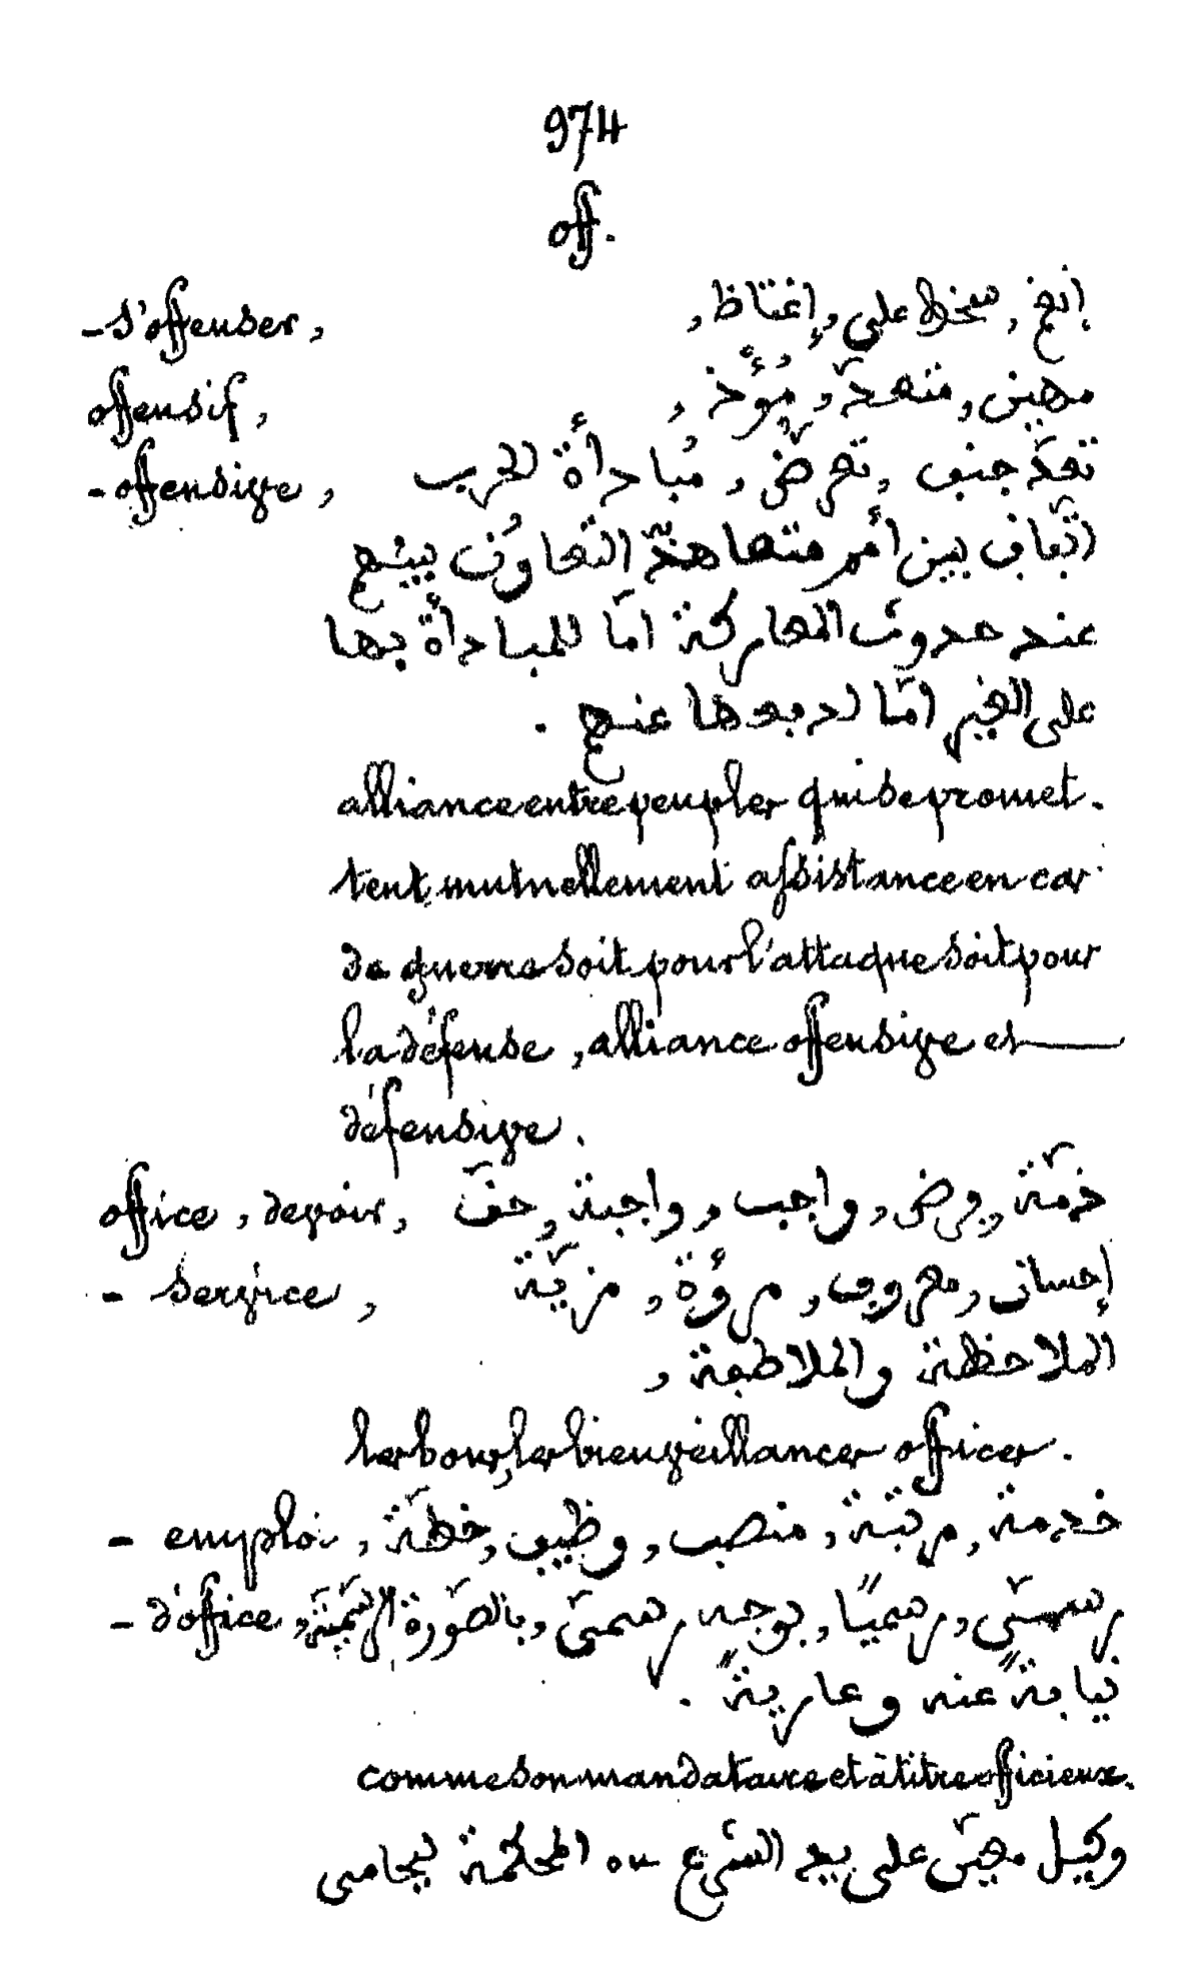 974
off.
- s'offenser, إنغمّ, سخط على, إغتاظ,
offensif, مهين, متعدّ, مُؤْذ,
- offensive, تعدّ جنب, تعرّض, مُبادأة للحرب
اتّفاق بين أمم متعاهدة التعاوُن بينهم
عند حدوث المعاركة امّا للمبادأة بها
على الغير امّا لدفعها عنهم.
alliance entre peuples qui se promet-
tent mutuellement assistance en cas
de guerre soit pour l'attaque soit pour
la défense, alliance offensive et
défensive.
office, devoir, ذمّة, فرض, واجب, واجبة, حقّ
- service, إحسان, معروف, مروُّة, مزيّة
الملاحظة والملاطفة,
les bons, les bienveillances offices.
- emploi, خدمة, مرتبة, منصب, وظيف, خطّة,
- d'office, رسميّ, رسميًّا, بوجه رسميّ, بالصّورة الرّسميّة,
نيابةً عنه وعاريةً.
comme son mandataire et à titre officieux.
وكيل معيّن على يد الشرع ou المحكمة ليحامى